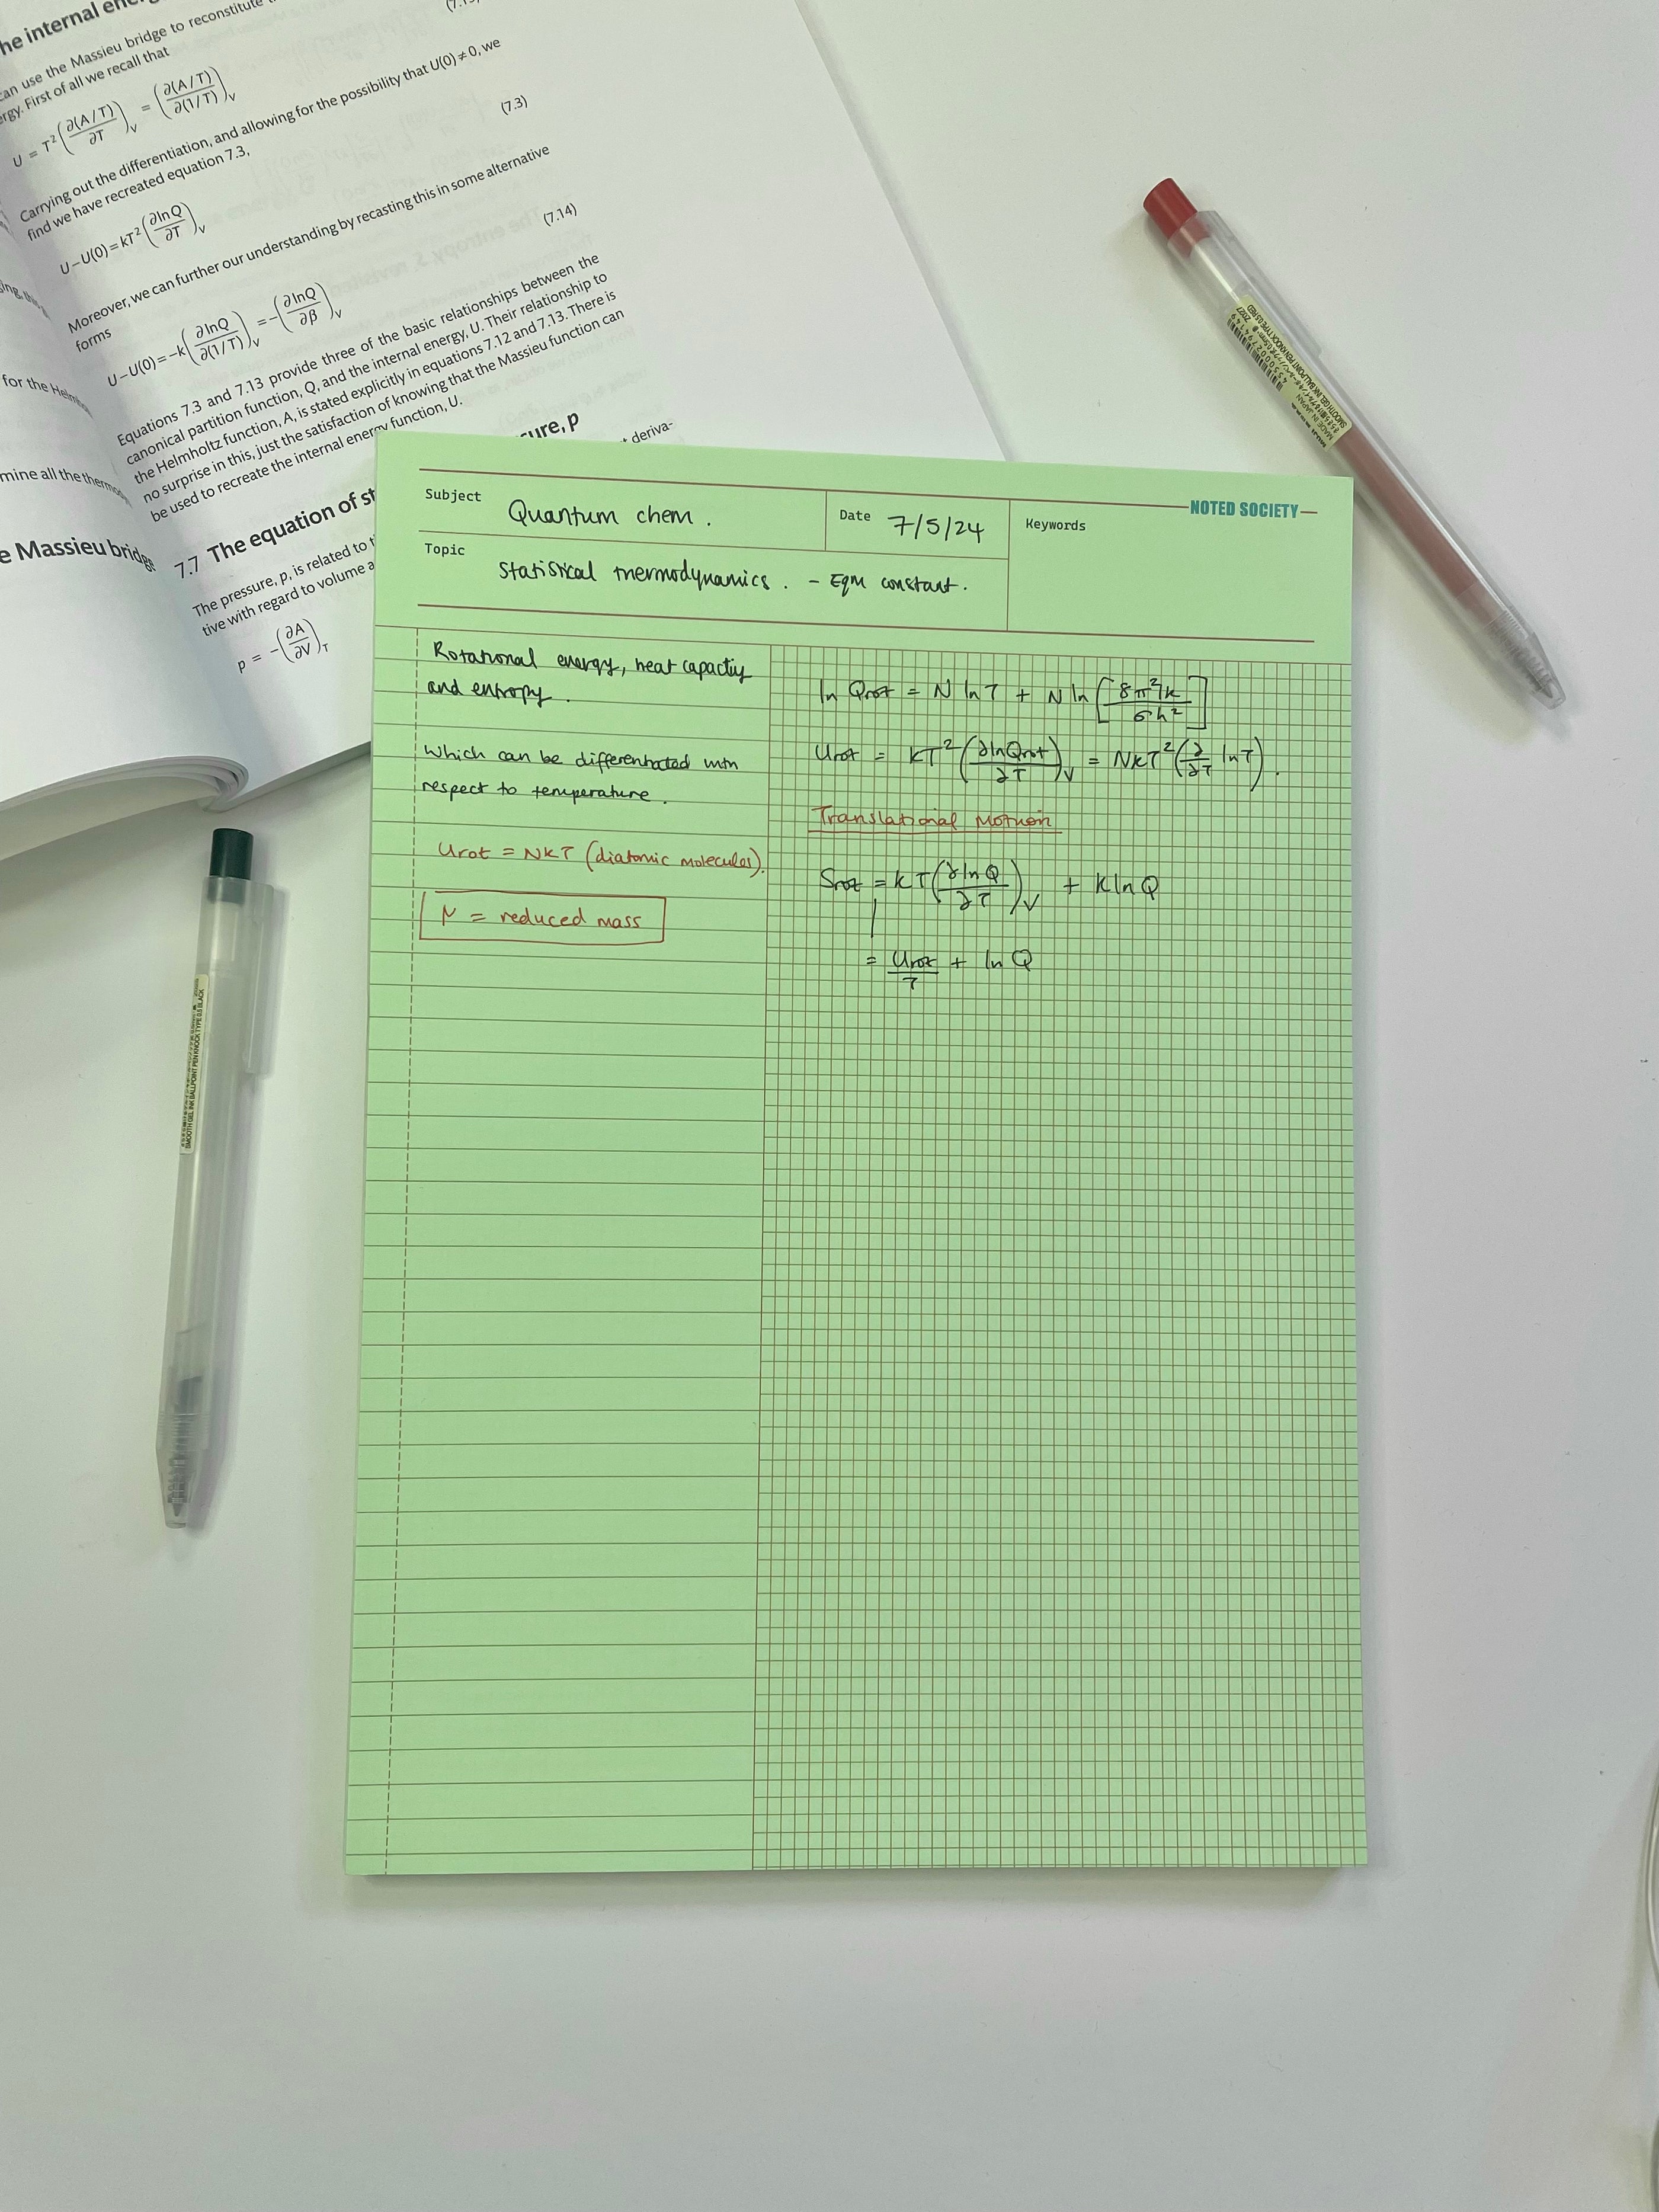 he internal
can use the Massieu bridge to reconstitute
rgy. First of all we recall that
U = T²(∂(A/T)/∂T)_V = (∂(A/T)/∂(1/T))_V
Carrying out the differentiation, and allowing for the possibility that U(0) ≠ 0, we
find we have recreated equation 7.3,
(7.3)
U−U(0) = kT²(∂lnQ/∂T)_V
Moreover, we can further our understanding by recasting this in some alternative
forms
(7.14)
U−U(0) = −k(∂lnQ/∂(1/T))_V = −(∂lnQ/∂β)_V
Equations 7.3 and 7.13 provide three of the basic relationships between the
canonical partition function, Q, and the internal energy, U. Their relationship to
the Helmholtz function, A, is stated explicitly in equations 7.12 and 7.13. There is
no surprise in this, just the satisfaction of knowing that the Massieu function can
be used to recreate the internal energy function, U.
for the
mine all the
e Massieu bridge
7.7 The equation of st
ure, p
The pressure, p, is related to
deriva-
tive with regard to volume a
p = −(∂A/∂V)_T
NOTED SOCIETY
Subject Quantum chem.
Date 7/5/24
Keywords
Topic Statistical thermodynamics. - Eqm constant.
Rotational energy, heat capactiy
and entropy.
Which can be differentiated with
respect to temperature.
Urot = NkT (diatomic molecules).
μ = reduced mass
ln Qrot = N ln T + N ln [8π²Ik/σh²]
Urot = kT²(∂lnQrot/∂T)_V = NkT²(∂/∂T lnT).
Translational Motion
Srot = kT(∂lnQ/∂T)_V + k ln Q
= Urot/T + ln Q
MADE IN JAPAN
SMOOTH GEL INK BALLPOINT PEN KNOCK TYPE 0.5 RED
SMOOTH GEL INK BALLPOINT PEN KNOCK TYPE 0.5 BLACK